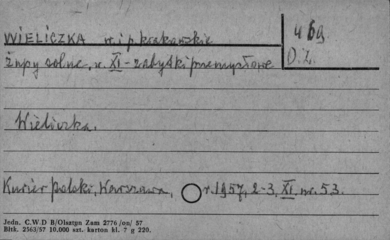 WIELICZKA w. i p. krakowskie
469
D.Z.
Żupy solne, w. XI - zabytki przemysłowe
Wieliczka.
Kurier Polski, Warszawa, r. 1957, 2-3, XI, nr. 53.
Jedn. C.W D B/Olsztyn Zam 2776 /on/ 57
Bltk. 2563/57 10.000 szt. karton kl. 7 g 220.